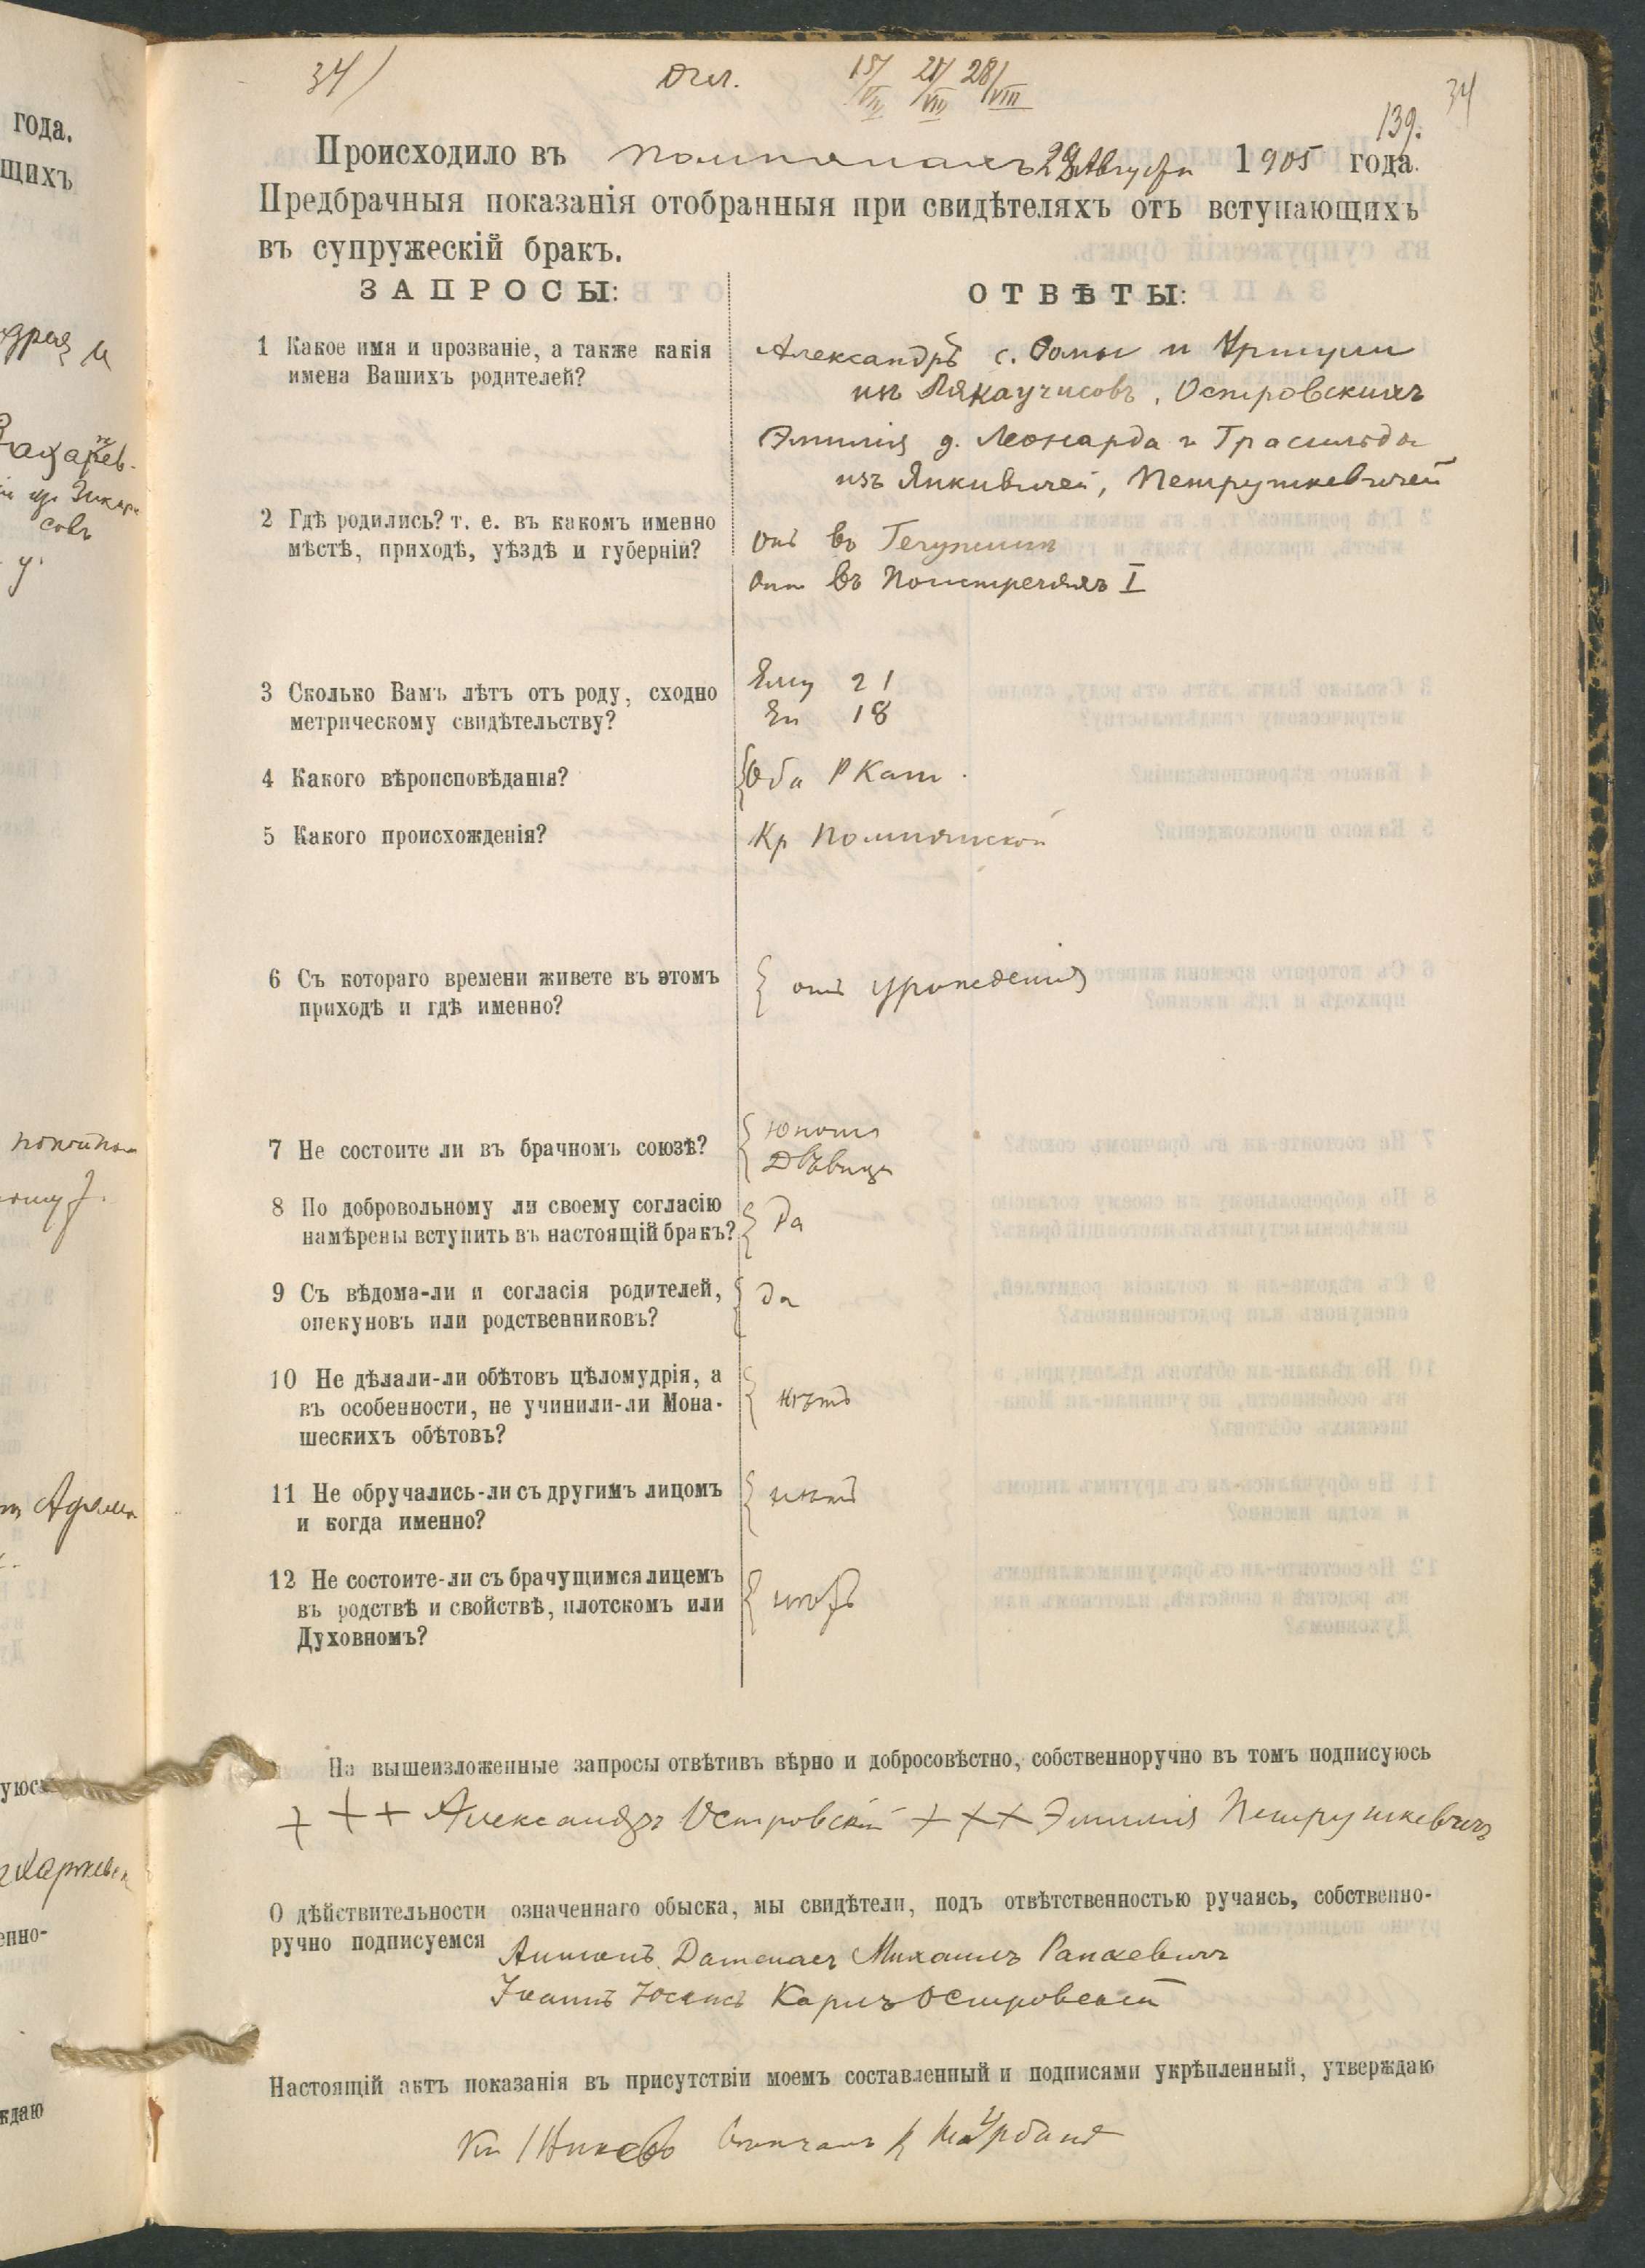 34/ Огл. 15/VIII 21/VIII 28/VIII 34
139.
Происходило въ Помпянахъ 28 Августа 1905 года.
Предбрачныя показанія отобранныя при свидѣтеляхъ отъ вступающихъ
въ супружескій бракъ.
ЗАПРОСЫ: ОТВѢТЫ:
1 Какое имя и прозваніе, а также какія
имена Вашихъ родителей?
Александръ с. Ѳомы и Уршули
изъ Островскихъ
Эмилія д. Леонарда и
изъ Янкивичей, Петрушкевичей
2 Гдѣ родились? т. е. въ какомъ именно
мѣстѣ, приходѣ, уѣздѣ и губерніи?
онъ въ
она въ I
3 Сколько Вамъ лѣтъ отъ роду, сходно
метрическому свидѣтельству?
Ему 21
Ей 18
4 Какого вѣроисповѣданія?
Оба РКат.
5 Какого происхожденія?
Кр Помпянской
6 Съ котораго времени живете въ этомъ
приходѣ и гдѣ именно?
отъ урожденія
7 Не состоите ли въ брачномъ союзѣ?
Юноша
Дѣвица
8 По добровольному ли своему согласію
намѣрены вступить въ настоящій бракъ?
Да
9 Съ вѣдома-ли и согласія родителей,
опекуновъ или родственниковъ?
да
10 Не дѣлали-ли обѣтовъ цѣломудрія, а
въ особенности, не учинили-ли Мона-
шескихъ обѣтовъ?
нѣтъ
11 Не обручались-ли съ другимъ лицомъ
и когда именно?
нѣтъ
12 Не состоите-ли съ брачущимся лицемъ
въ родствѣ и свойствѣ, плотскомъ или
Духовномъ?
нѣтъ
На вышеизложенные запросы отвѣтивъ вѣрно и добросовѣстно, собственноручно въ томъ подписуюсь
+ + + Александръ Островскій + + + Эмилія Петрушкевичъ
О дѣйствительности означеннаго обыска, мы свидѣтели, подъ отвѣтственностью ручаясь, собственно-
ручно подписуемся
Антонъ Михаилъ
Іоаннъ Карлъ Островскій
Настоящій актъ показанія въ присутствіи моемъ составленный и подписями укрѣпленный, утверждаю